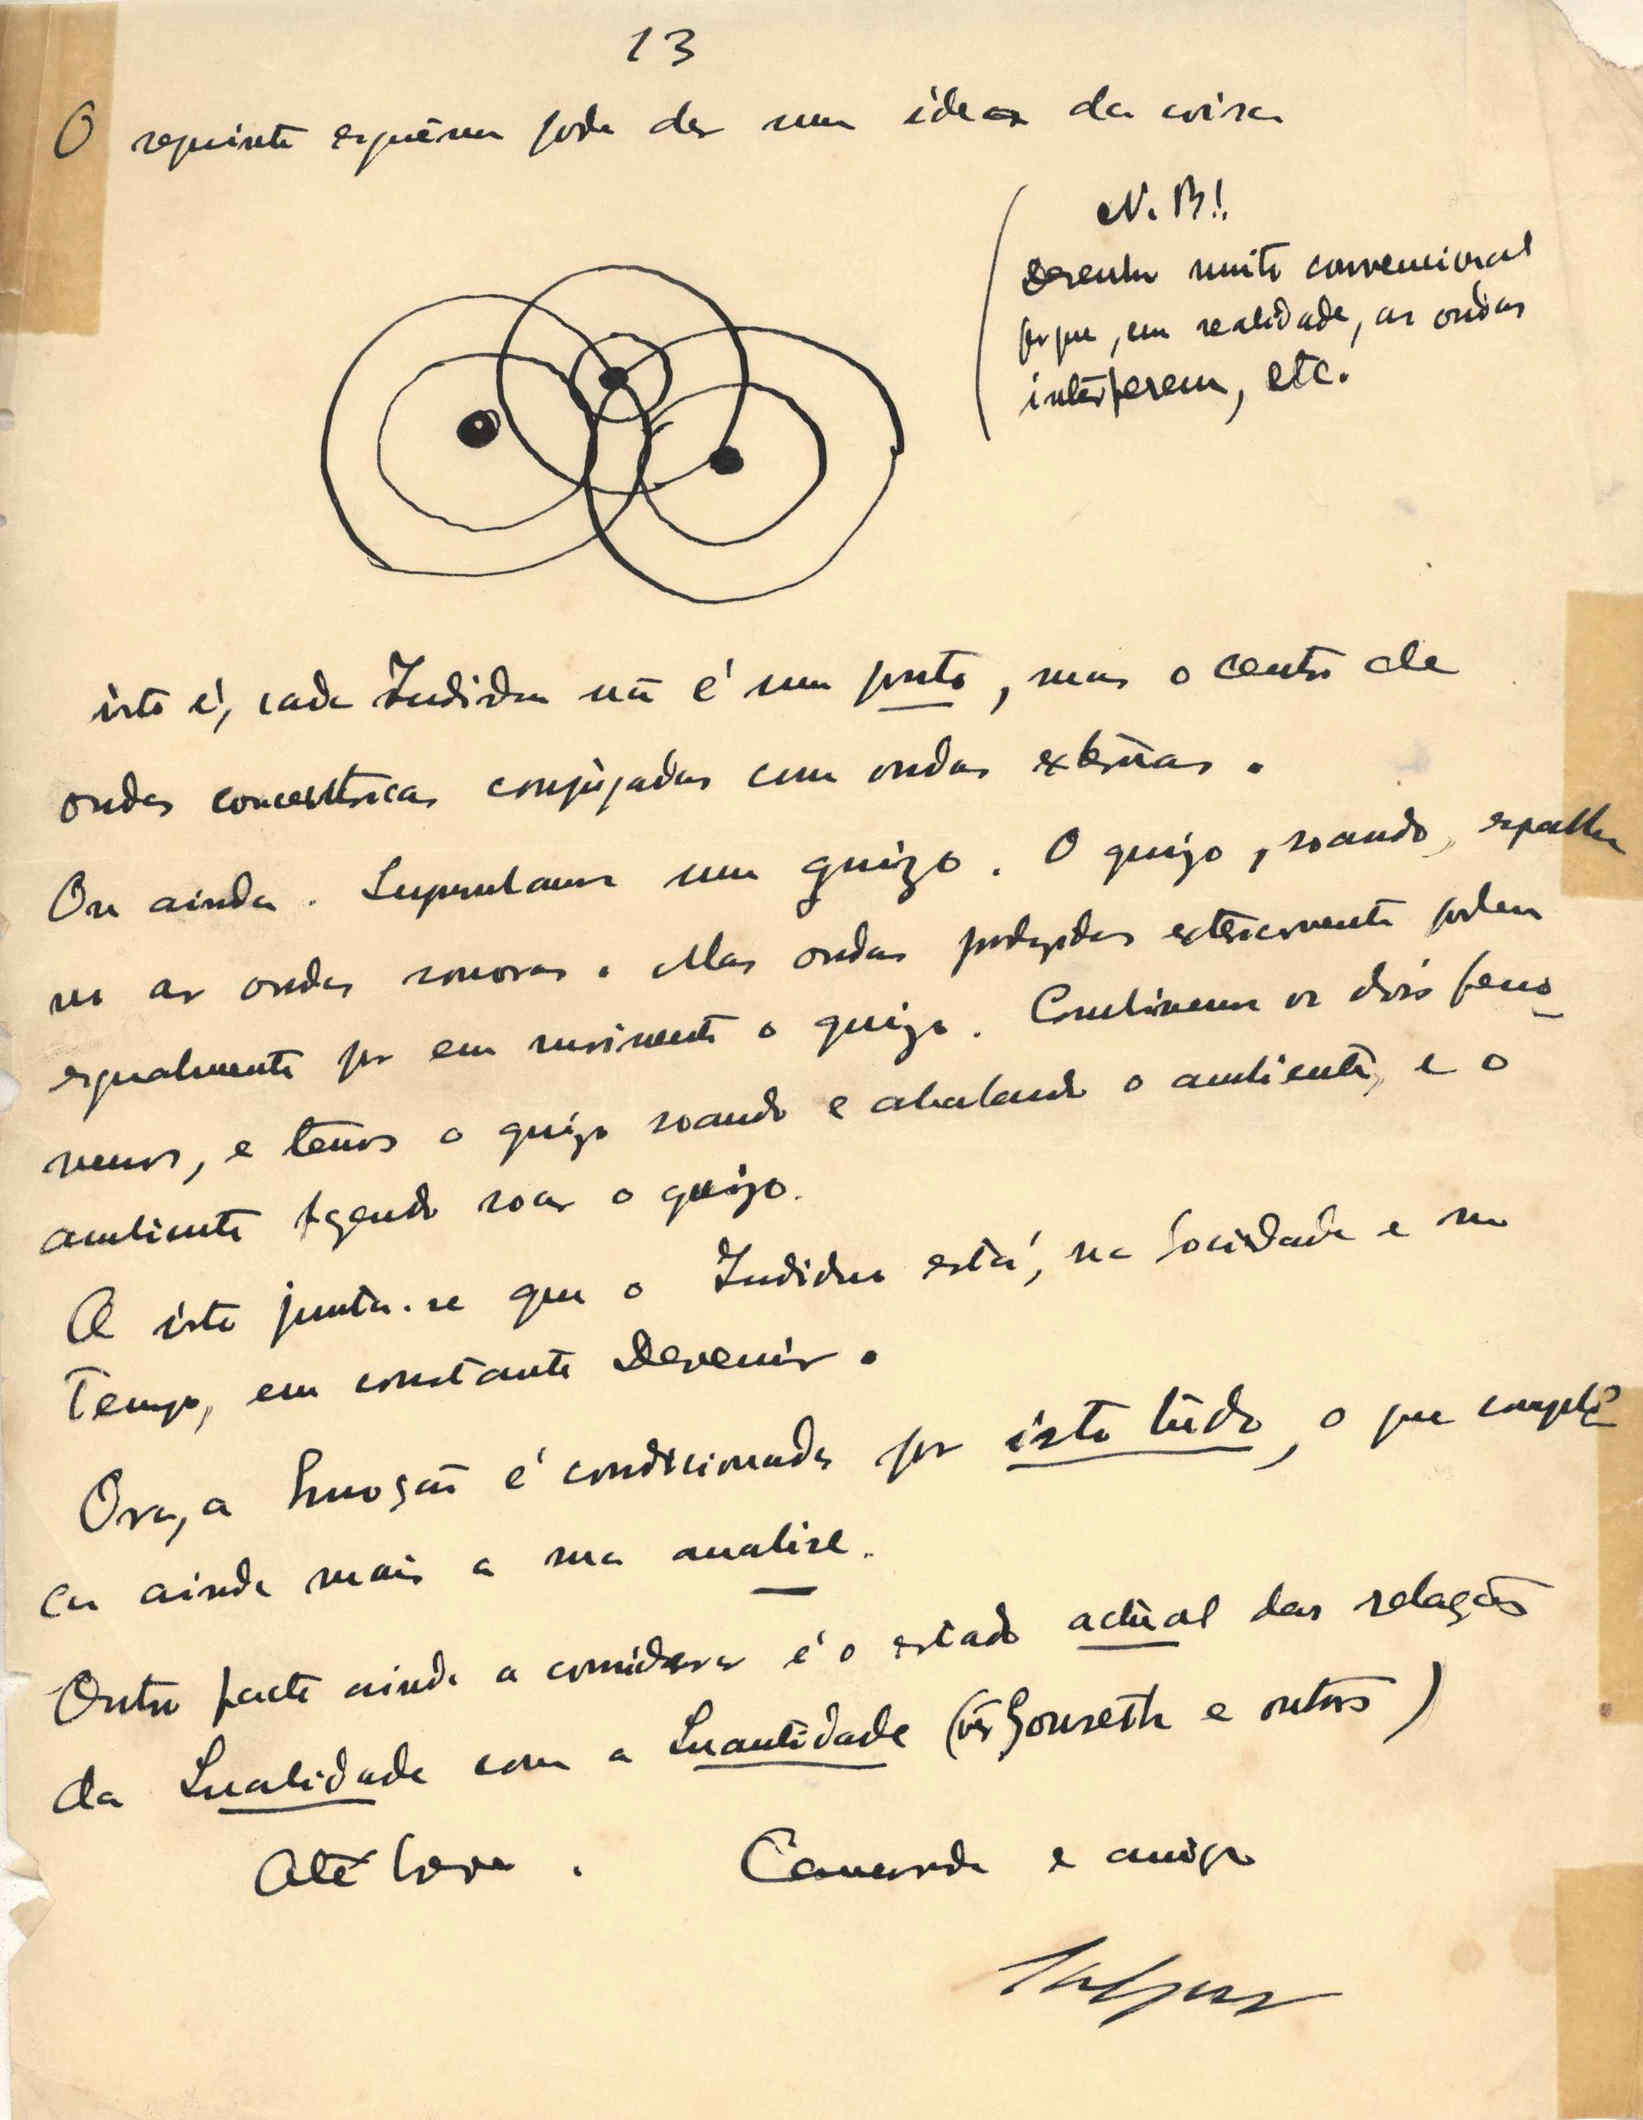 13
O seguinte esquêma pode dar uma idea da coisa
N. B!.
Desenho muito convencional
porque, em realidade, as ondas
interferem, etc.
isto é, cada Individuo não é um ponto, mas o centro de
ondas concentricas conjugadas com ondas externas.
Ou ainda. Suponhamos um guizo. O guizo, soando, espalha
no ar ondas sonoras. Mas ondas produzidas exteriormente podem
egualmente pôr em movimento o guizo. Combinemos os dois feno-
menos, e temos o guizo soando e abalando o ambiente, e o
ambiente fazendo soar o guizo.
A isto junta-se que o Individuo está, na Sociedade e no
Tempo, em constante Devenir.
Ora, a Emoção é condicionada por isto tudo, o que compli-
ca ainda mais a sua analise.
Outro facto ainda a considerar é o estado actual das relações
da Qualidade com a Quantidade (vêr Gonseth e outros)
Até breve. Camarada e amigo